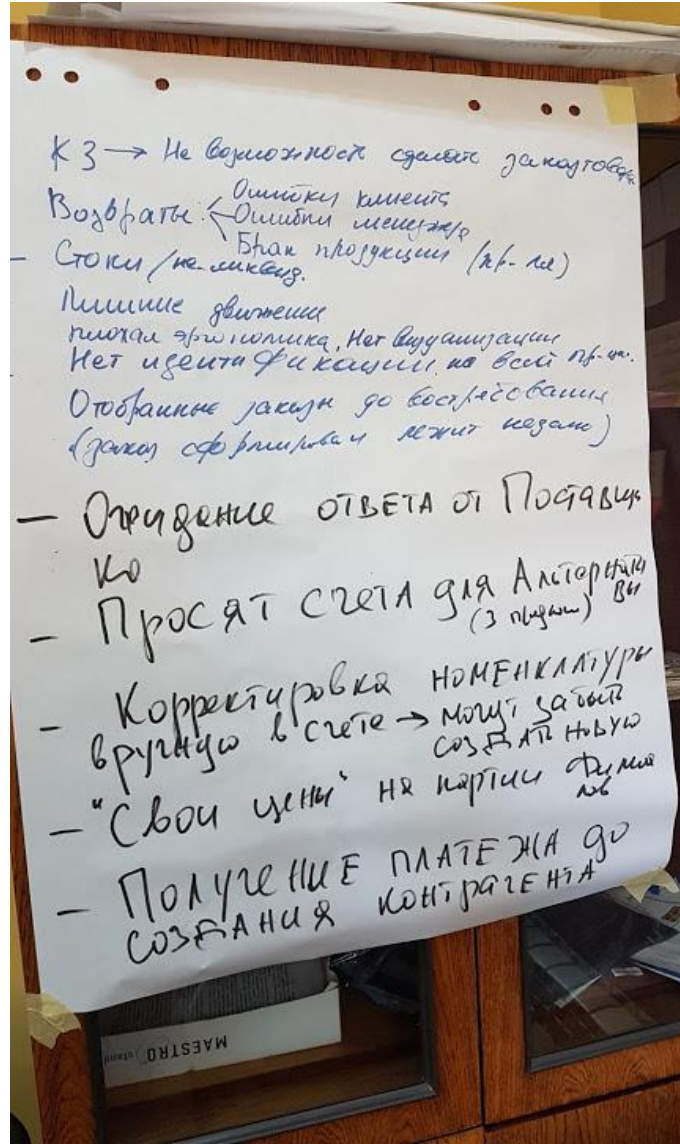 КЗ → Не возможность сделать закуп товара
Возвраты: Ошибки клиента
Ошибки менеджера
Брак продукции (пр-ля)
– Стоки/не-ликвид.
Лишние движения
плохая эргономика, Нет визуализации
Нет идентификации на всей пр-ции.
Отобранные заказы до востребования
(заказ сформирован лежит неделю)
– Ожидание ответа от Поставщи
ко
– Просят счета для Альтернати
вы
(3 )
– Корректировка номенклатуры
вручную в счете → могут забыть
создать новую
– "Свои цены" на партии
– Получение платежа до
создания контрагента
MAESTRO